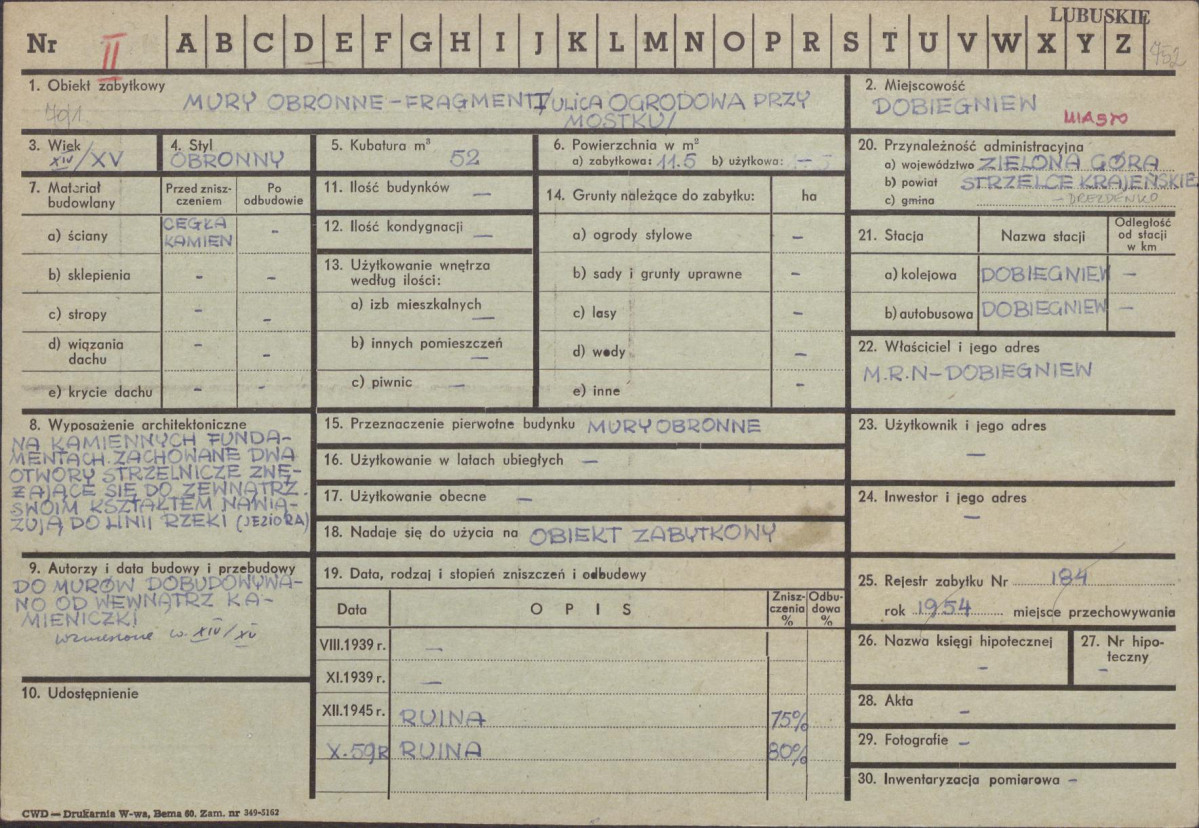 LUBUSKIE
Nr II A B C D E F G H I J K L M N O P R S T U V W X Y Z 752
1. Obiekt zabytkowy MURY OBRONNE-FRAGMENT I/ULICA OGRODOWA PRZY
MOSTKU/
2. Miejscowość
DOBIEGNIEW
MIASTO
3. Wiek
XIV/XV
4. Styl
OBRONNY
5. Kubatura m³
52
6. Powierzchnia w m²
a) zabytkowa: 11.5 b) użytkowa: -
20. Przynależność administracyjna
a) województwo ZIELONA GÓRA
b) powiat STRZELCE KRAJEŃSKIE
c) gmina - DREZDENKO
7. Materiał
budowlany
Przed znisz-
czeniem
Po
odbudowie
a) ściany CEGŁA
KAMIEN -
b) sklepienia - -
c) stropy - -
d) wiązania
dachu - -
e) krycie dachu - -
11. Ilość budynków -
12. Ilość kondygnacji -
13. Użytkowanie wnętrza
według ilości:
a) izb mieszkalnych -
b) innych pomieszczeń -
c) piwnic -
14. Grunty należące do zabytku: ha
a) ogrody stylowe -
b) sady i grunty uprawne -
c) lasy -
d) wody -
e) inne -
21. Stacja Nazwa stacji Odległość
od stacji
w km
a) kolejowa DOBIEGNIEW -
b) autobusowa DOBIEGNIEW -
22. Właściciel i jego adres
M.R.N-DOBIEGNIEW
8. Wyposażenie architektoniczne
NA KAMIENNYCH FUNDA-
MENTACH. ZACHOWANE DWA
OTWORY STRZELNICZE ZNĘ-
ŻAJĄCE SIĘ DO ZEWNĄTRZ.
SWOIM KSZTAŁTEM NAWIĄ-
ZUJĄ DO LINII RZEKI (JEZIORA)
15. Przeznaczenie pierwotne budynku MURY OBRONNE
16. Użytkowanie w latach ubiegłych -
17. Użytkowanie obecne -
18. Nadaje się do użycia na OBIEKT ZABYTKOWY
23. Użytkownik i jego adres
-
24. Inwestor i jego adres
-
9. Autorzy i data budowy i przebudowy
DO MURÓW DOBUDOWYWA-
NO OD WEWNĄTRZ KA-
MIENICZKI
wzniesione w XIV/XV
10. Udostępnienie
19. Data, rodzaj i stopień zniszczeń i odbudowy
Data OPIS Znisz-
czenia
% Odbu-
dowa
%
VIII.1939 r. -
XI.1939 r. -
XII.1945 r. RUINA 75%
X-59R RUINA 80%
25. Rejestr zabytku Nr 184
rok 1954 miejsce przechowywania
26. Nazwa księgi hipotecznej
-
27. Nr hipo-
teczny
-
28. Akta -
29. Fotografie -
30. Inwentaryzacja pomiarowa -
CWD — Drukarnia W-wa, Bema 60. Zam. nr 349-5162